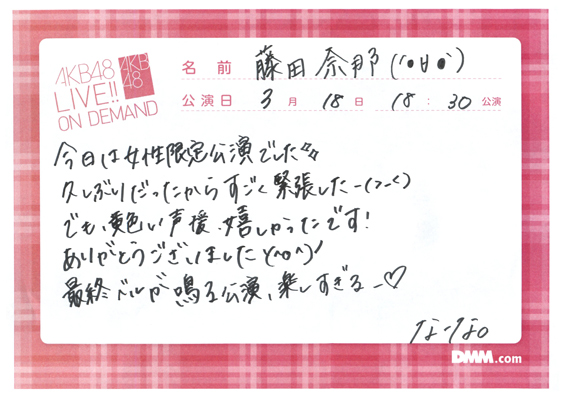 AKB48
LIVE!!
ON DEMAND
AKB
48
名前 藤田奈那(´•∀•`)
公演日 3月18日 18:30公演
今日は女性限定公演でした
久しぶりだったからすごく緊張したー(つ-<)
でも、黄色い声援、嬉しかったです!
ありがとうございましたヾ(^o^)ノ
最終ベルが鳴る公演、楽しすぎるー♡
なーな。
DMM.com